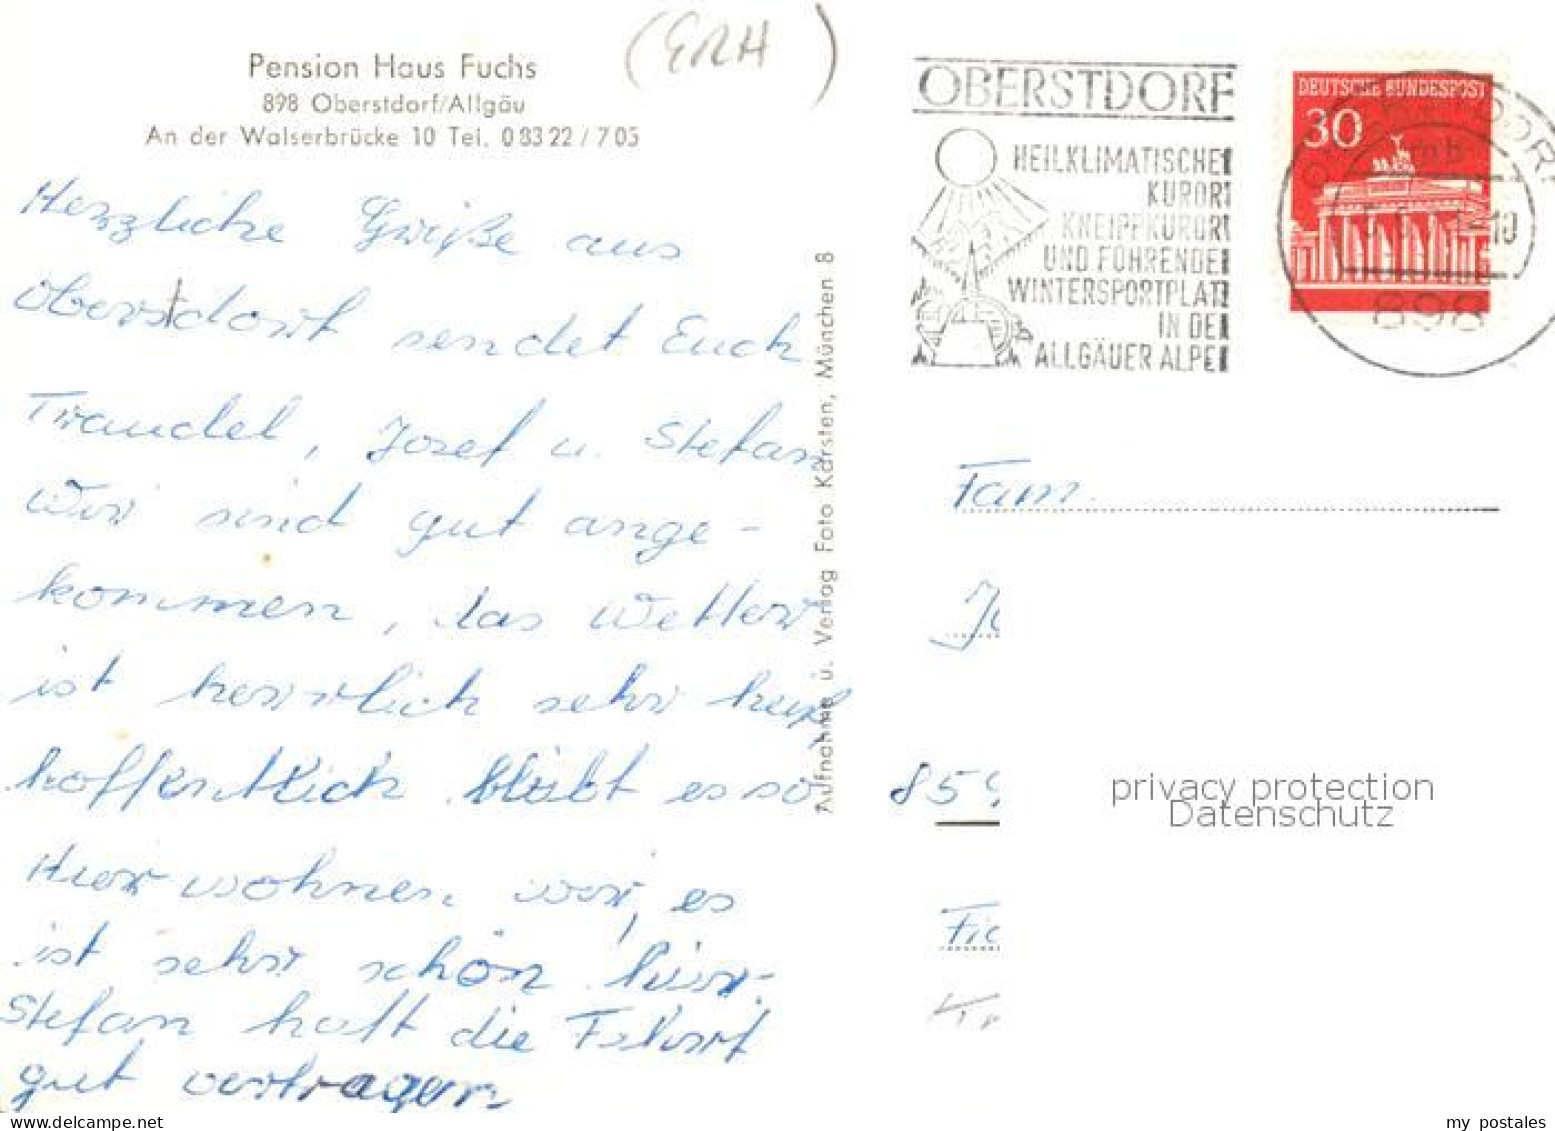 Pension Haus Fuchs
898 Oberstdorf/Allgäu
An der Walserbrücke 10 Tel. 08322/705
(ERH)
Herzliche Grüße aus
Oberstdorf sendet Euch
Traudel, Josef u. Stefan
Wir sind gut ange-
kommen, das Wetter
ist herrlich sehr heiß
hoffentlich bleibt es so
Hier wohnen wir, es
ist sehr schön hier.
Stefan hat die Fahrt
gut vertragen
Aufnahme u. Verlag Foto Kärsten, München 8
OBERSTDORF
HEILKLIMATISCHE
KURORT
KNEIPPKURORT
UND FÜHRENDE
WINTERSPORTPLATZ
IN DE
ALLGÄUER ALPE
DEUTSCHE BUNDESPOST
30
-10
898
Fam.
859
privacy protection
Datenschutz
my postales